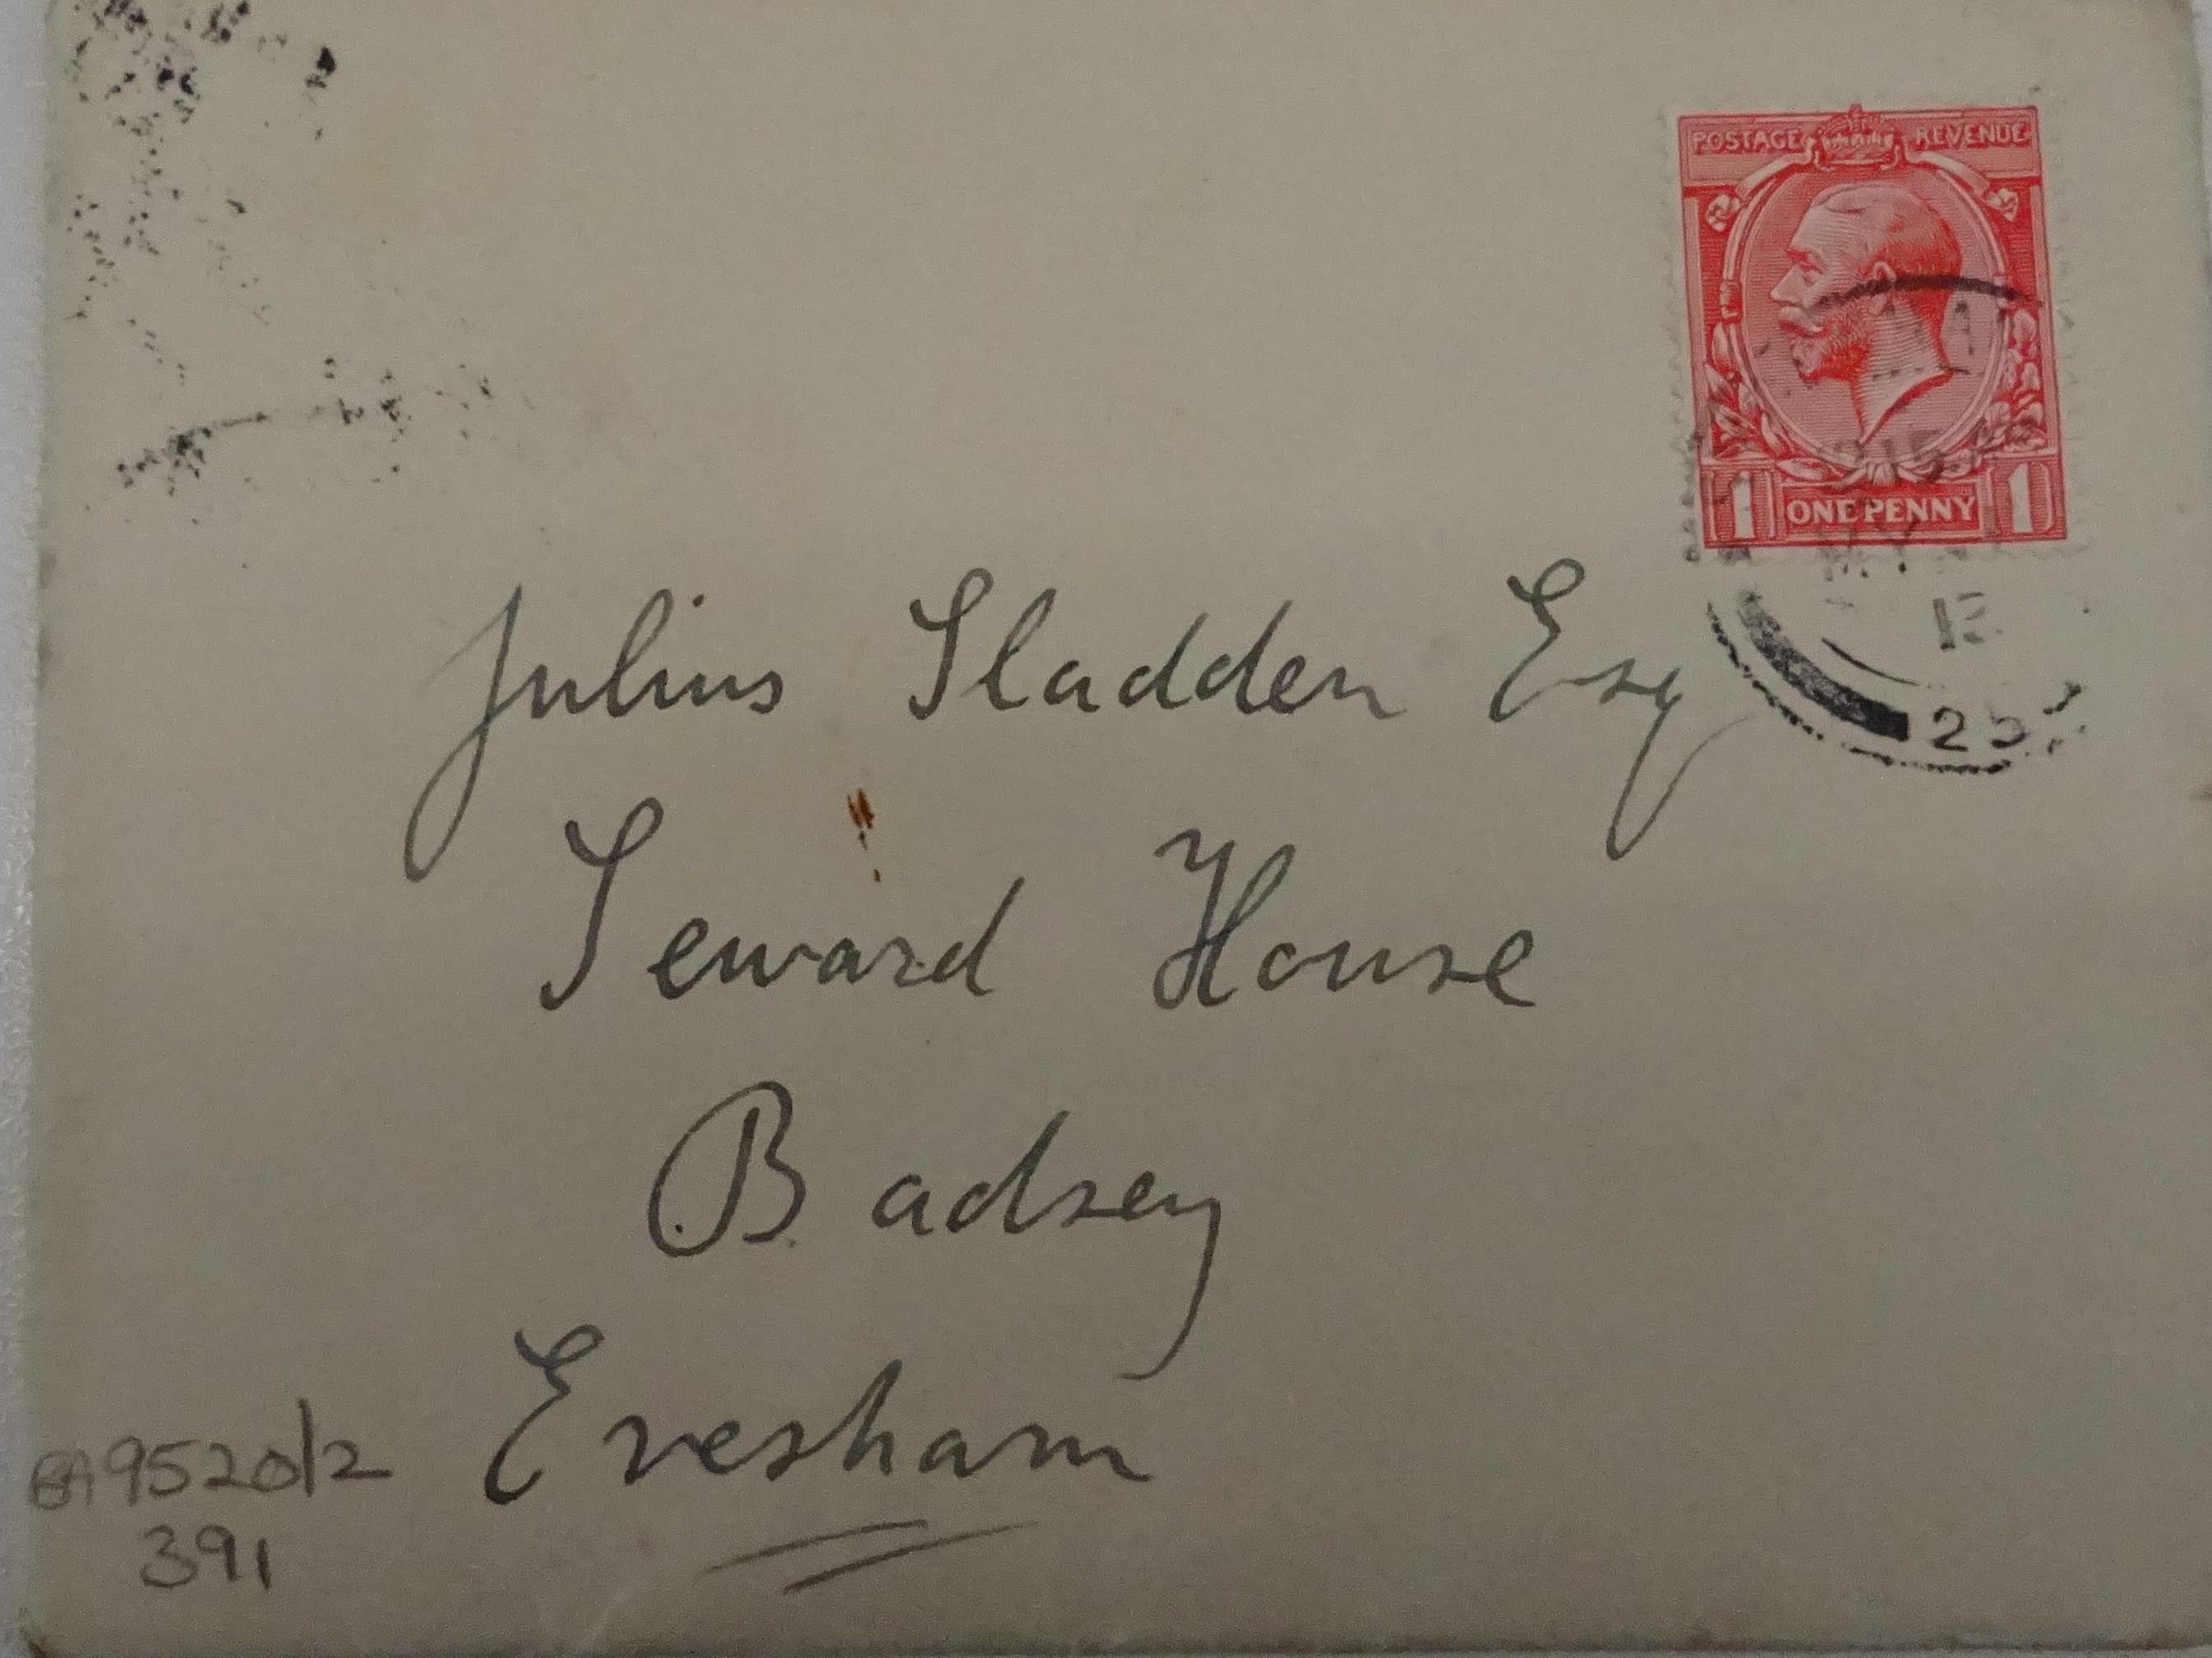 POSTAGE REVENUE
1 ONE PENNY 1
Julius Sladden Esq
Seward House
Badsey
Evesham
BA9520/2
391